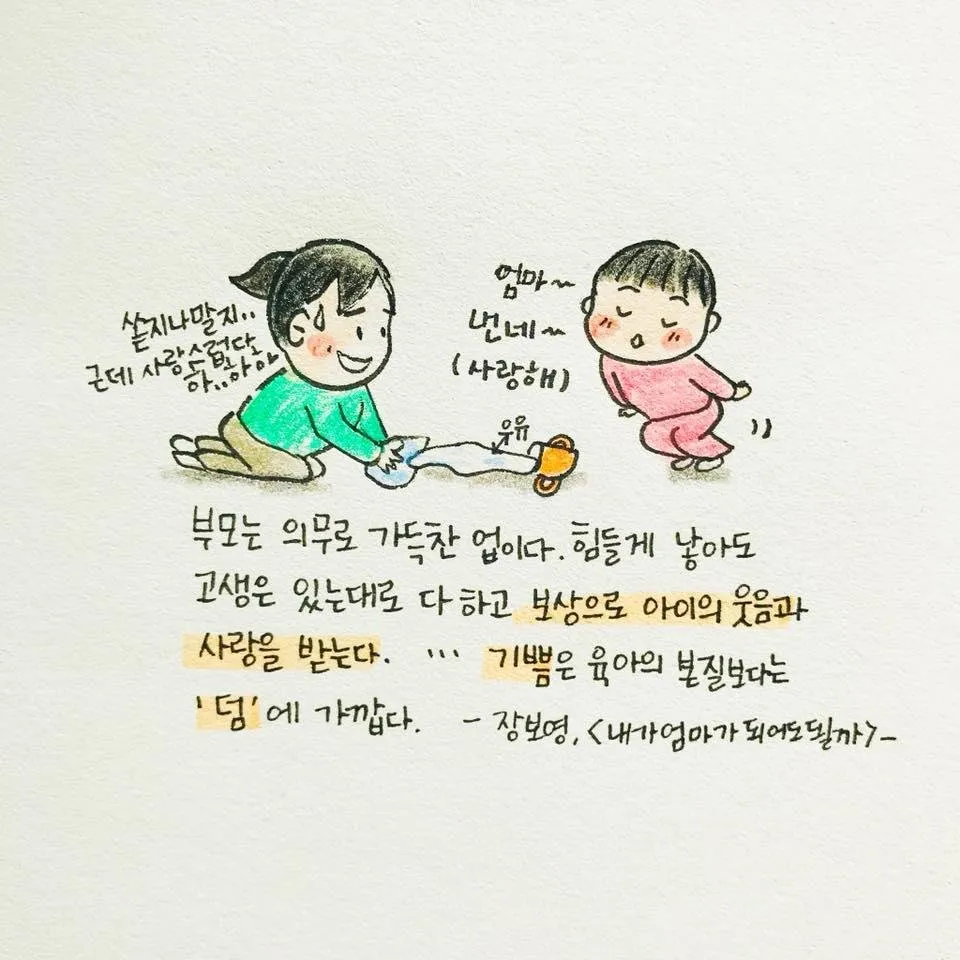 쏟지나말지..
근데 사랑스럽다
하..하하
엄마~
넌네~
(사랑해)
우유
부모는 의무로 가득찬 업이다. 힘들게 낳아도
고생은 있는대로 다 하고 보상으로 아이의 웃음과
사랑을 받는다. ... 기쁨은 육아의 본질보다는
'덤'에 가깝다. - 장보영, <내가엄마가되어도될까>-